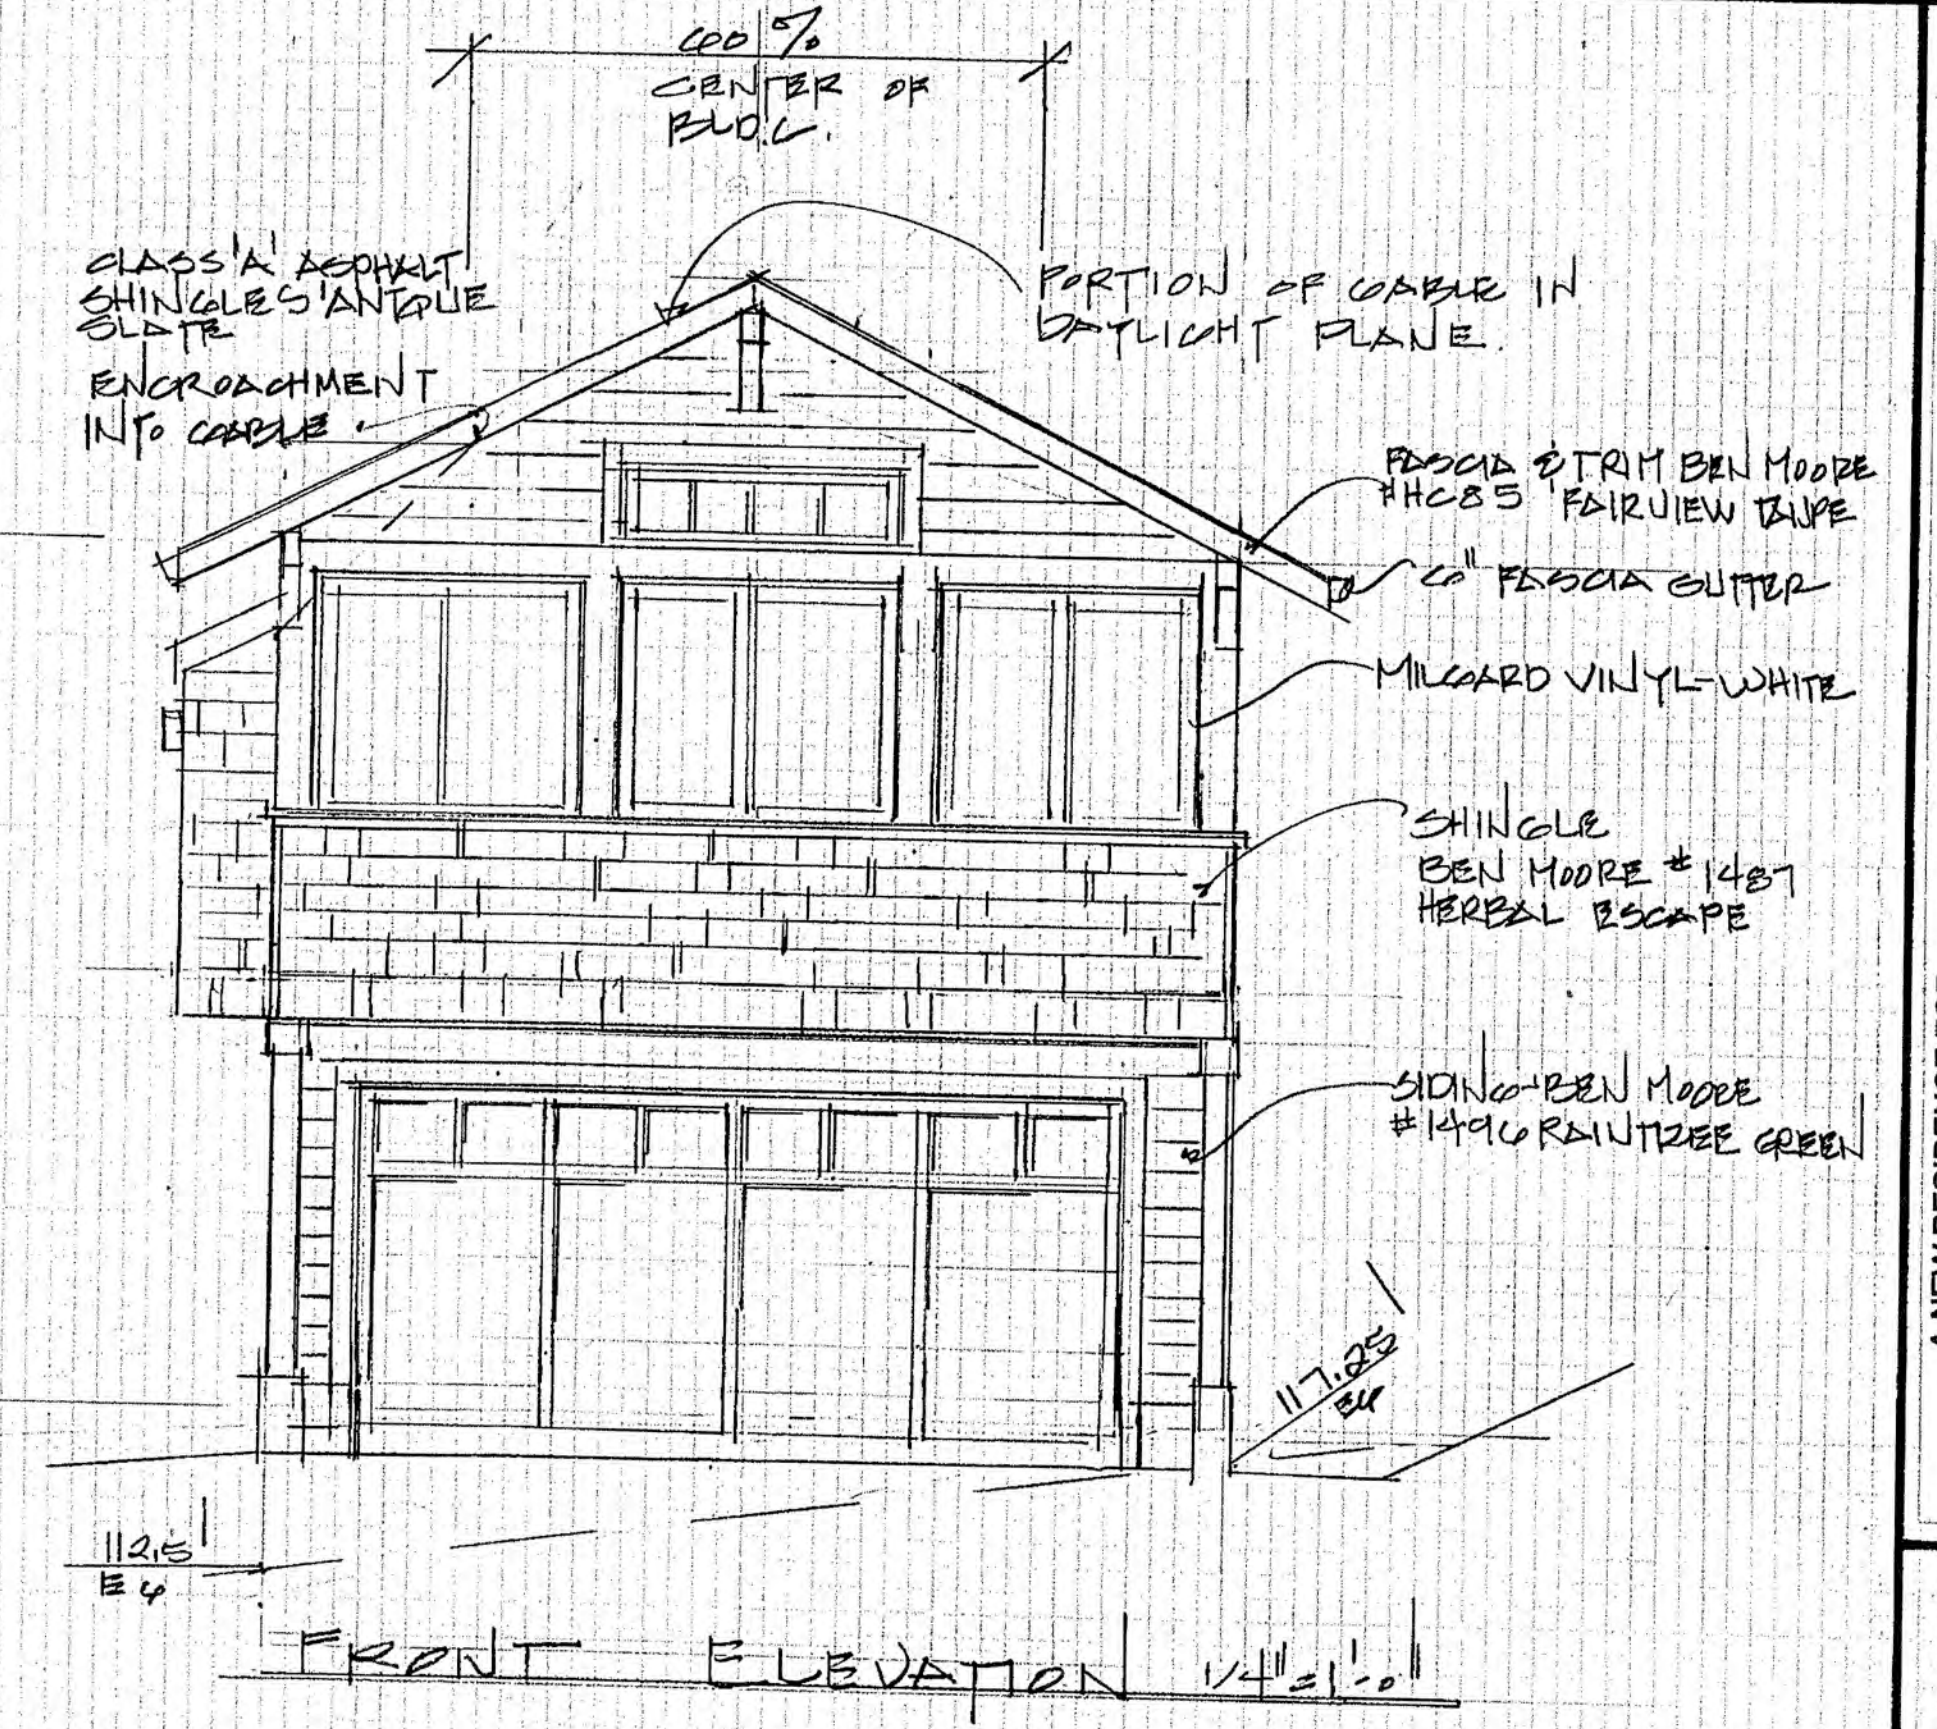 60%
CENTER OF
BLDG.
CLASS 'A' ASPHALT
SHINGLES 'ANTQUE
SLATE
ENCROACHMENT
INTO GABLE.
PORTION OF GABLE IN
DAYLIGHT PLANE.
FASCIA & TRIM BEN MOORE
#HC85 'FAIRVIEW TAUPE
6" FASCIA GUTTER
MILGARD VINYL-WHITE
SHINGLE
BEN MOORE #1487
HERBAL ESCAPE
SIDING-BEN MOORE
#1496 RAINTREE GREEN
117.25
EG
112.5'
EG
FRONT ELEVATION 1/4"=1'-0"